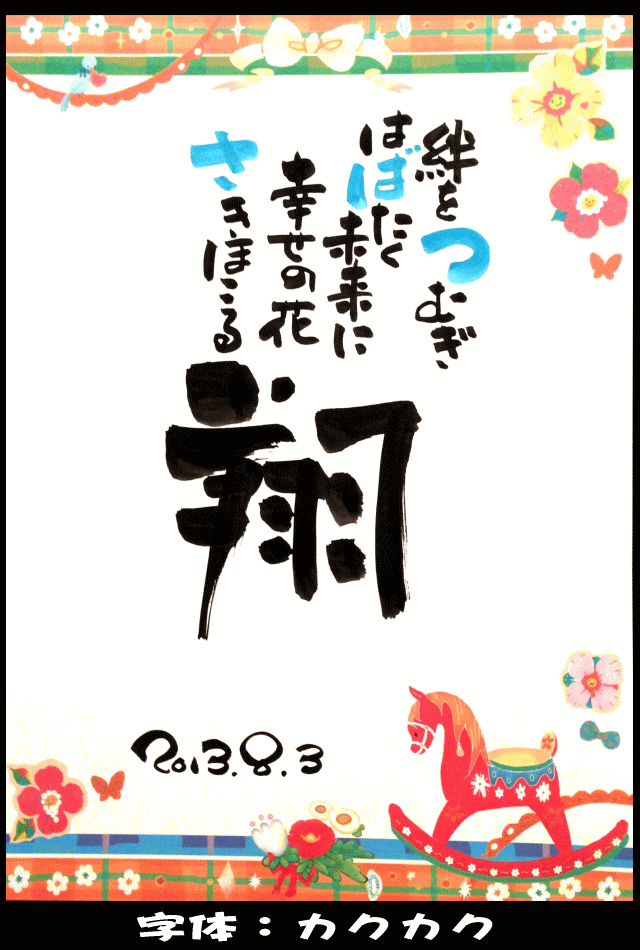 絆をつむぎ
はばたく
未来に
幸せの花
さきほこる
翔
2013.8.3
字体：カクカク